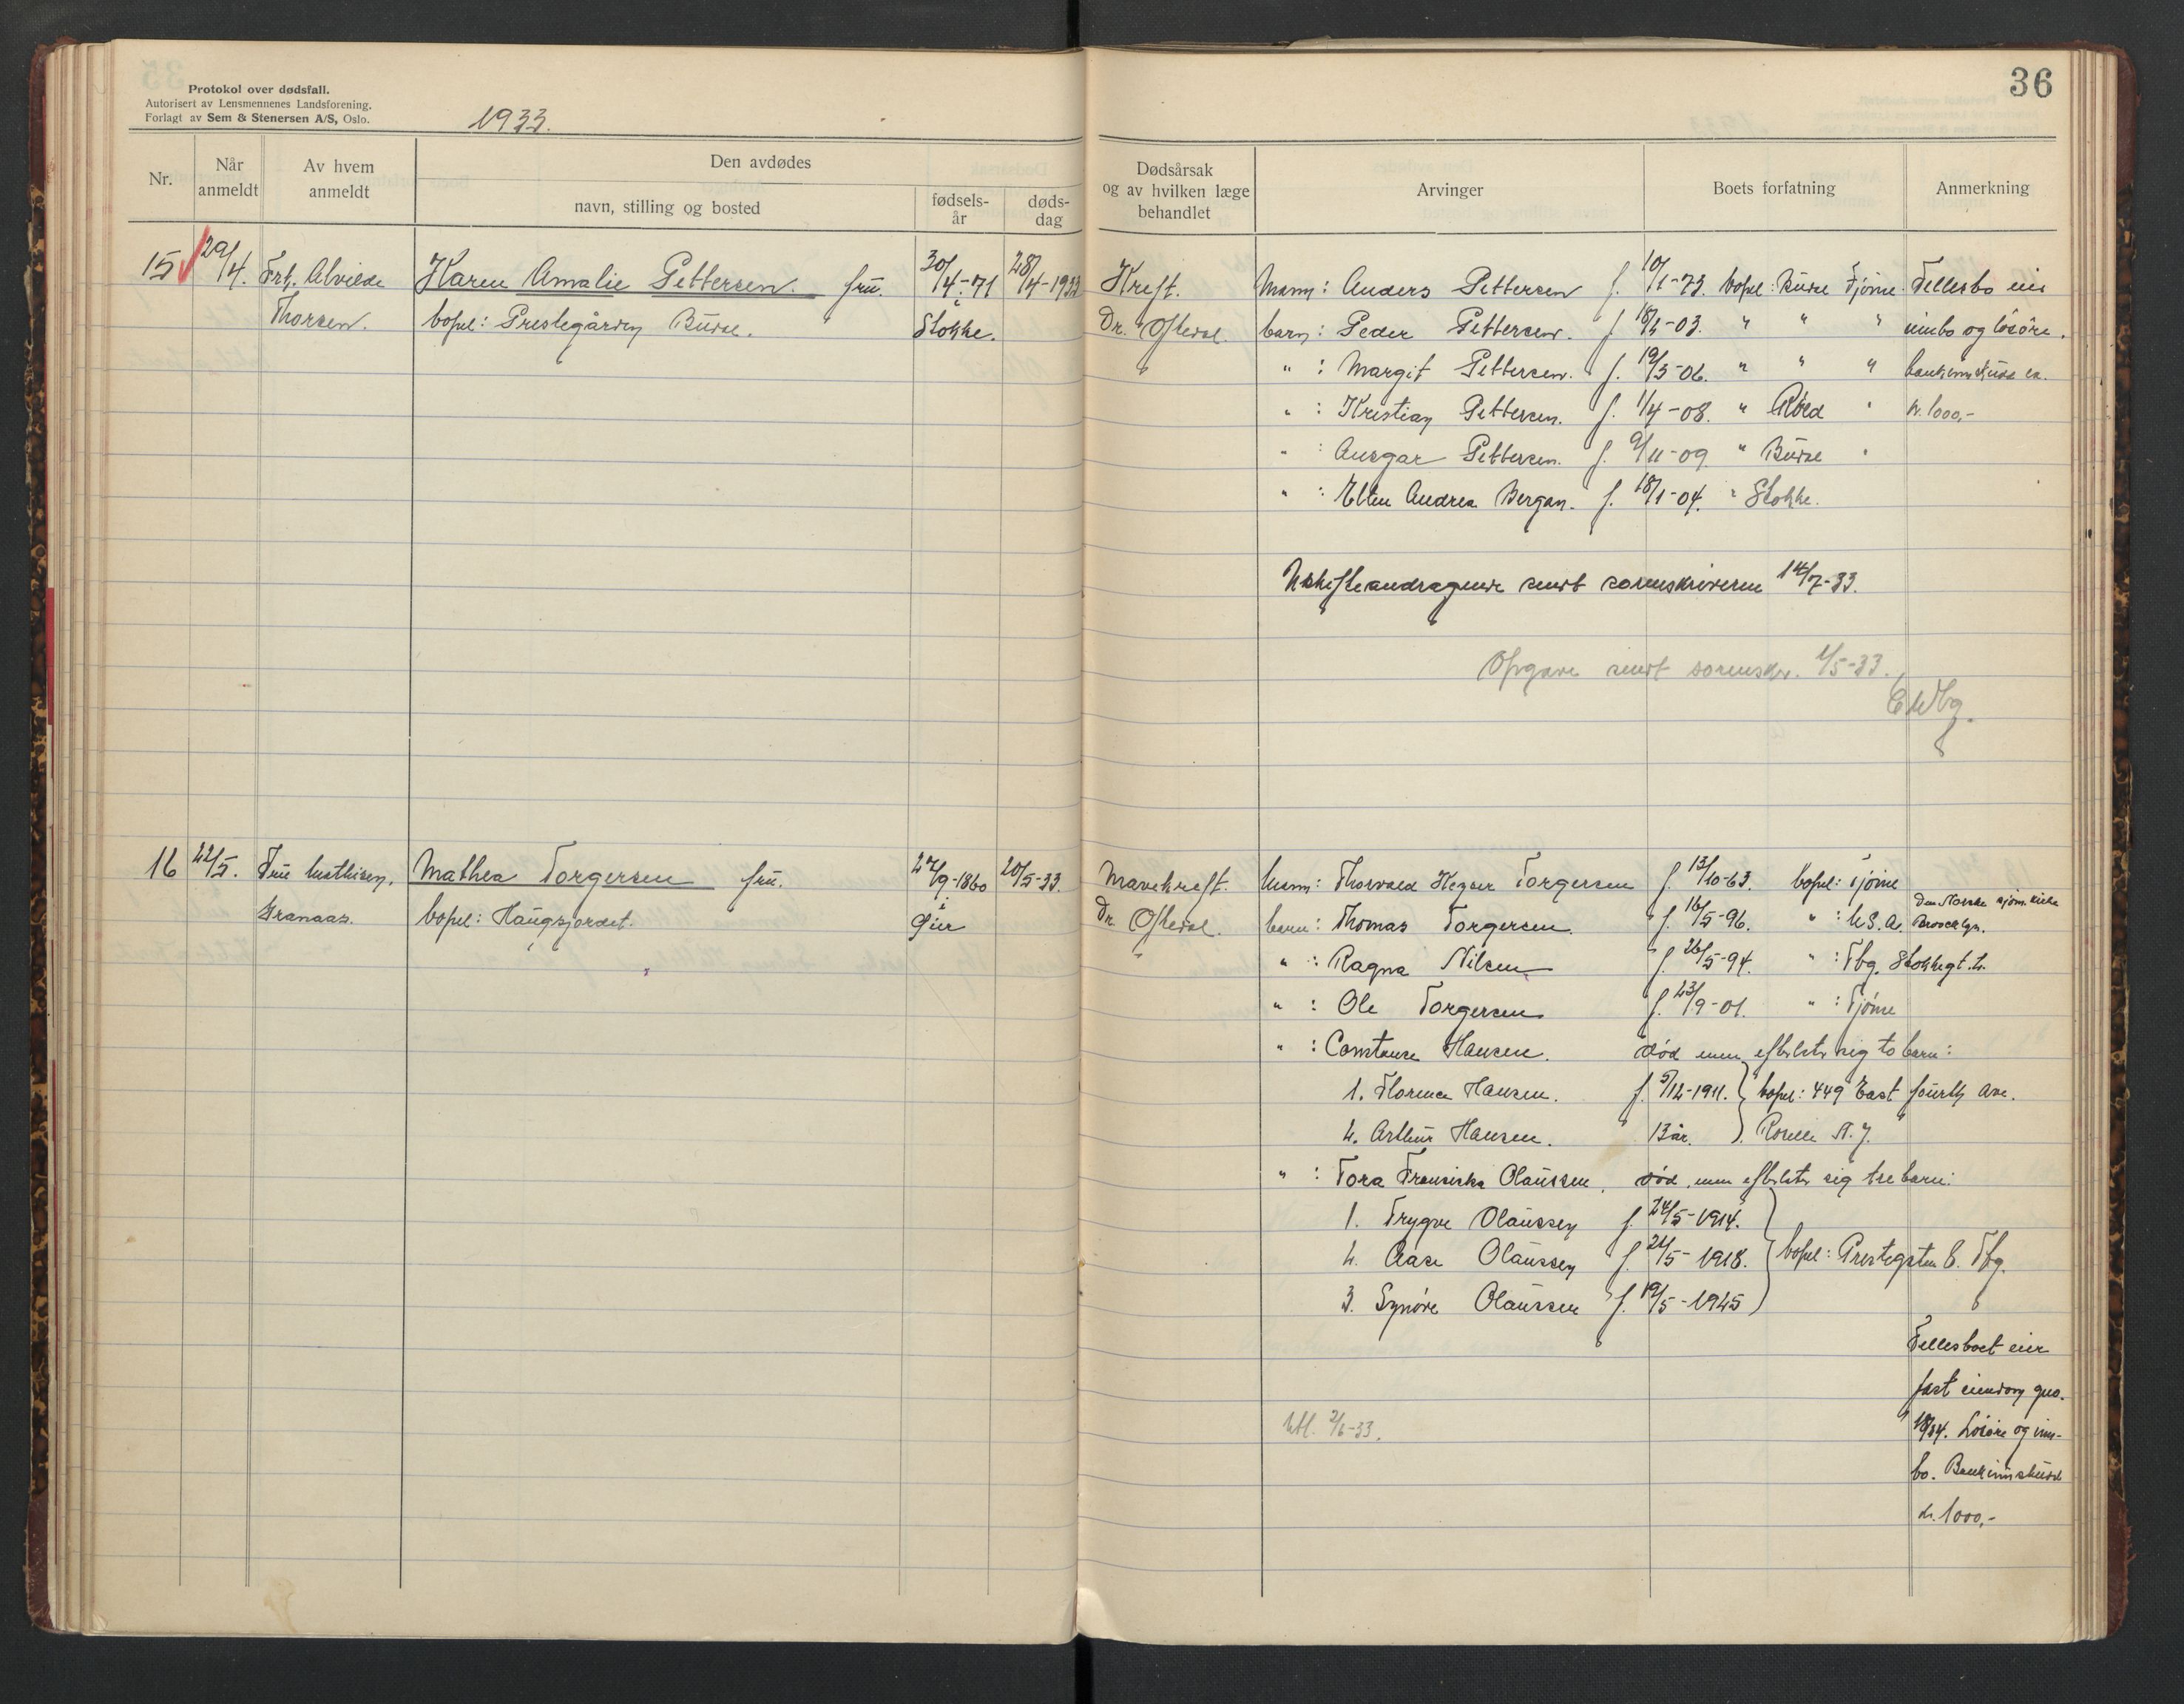 36
Protokol over dødsfall.
Autorisert av Lensmennenes Landsforening.
Forlagt av Sem & Stenersen A/S, Oslo.
1933.
Nr.
Når anmeldt
Av hvem anmeldt
Den avdødes
navn, stilling og bosted
fødsels-år
døds-dag
Dødsårsak og av hvilken læge behandlet
Arvinger
Boets forfatning
Anmerkning
15 29/4. Frk. Alvilde Karen Amalie Pettersen. fru. 30/4-71 28/4-1933 Kreft. Mann: Anders Pettersen f. 10/1-73. bopel: Burø Tjøme. Fellesbo eier
Thorsen. bopel: Prestegården Burø. i Stokke. Dr. Oftedal. barn: Peder Pettersen. f. " " " innbo og løsøre.
" : Margit Pettersen. f. 19/3-06. " " " bankinnskudd ca.
" : Kristian Pettersen. f. 1/4-08. " Røed " kr. 1000,-
" : Ansgar Pettersen. f. 9/11-09. " Burø "
" : Ellen Andrea Bergan. f. 18/1-04. " Stokke.
Uskifteandragende sendt sorenskriveren 14/7-33.
Opgave sendt sorenskr. 1/5-33.
16 22/5. Fru Mathisen, Mathea Torgersen fru. 27/9-1860 20/5-33. Mavekreft. Mann: Thorvald Torgersen f. 13/10-63. bopel: Tjøme
Granaas. bopel: Haugsjordet. i Dr. Oftedal. barn: Thomas Torgersen. f. 16/5-96. " : U.S.A. Den Norske sjøm. kirke
" : Ragna Nilsen f. 26/5-94. " : Tbg. Stokkegt. 2.
" : Ole Torgersen f. 23/9-01. " : Tjøme
" : Constanse Hansen. død men efterlater sig to barn:
1. Florence Hansen. f. 5/12-1911. } bopel: 449 East fourth Ave.
2. Arthur Hansen. 13 år. } Roselle N.J.
" : Tora Fransiska Olaussen, død, men efterlater sig tre barn:
1. Trygve Olaussen f. 24/5-1914.
2. Aase Olaussen f. 21/5-1918. } bopel: Prestegaten 8. Tbg.
3. Synøve Olaussen f. 19/5-1925
Fellesboet eier
fast eiendom gno.
Løsøre og inn-
Utl. 2/6-33.
bo. Bankinnskudd
kr. 1000,-